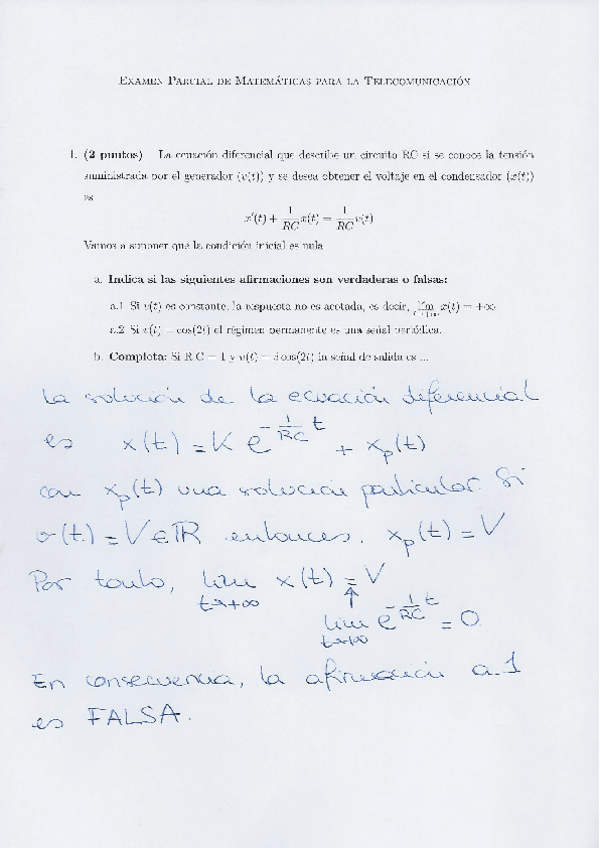 EXAMEN PARCIAL DE MATEMÁTICAS PARA LA TELECOMUNICACIÓN
1. (2 puntos) La ecuación diferencial que describe un circuito RC si se conoce la tensión
suministrada por el generador (v(t)) y se desea obtener el voltaje en el condensador (x(t))
es
x'(t) + 1/RC x(t) = 1/RC v(t)
Vamos a suponer que la condición inicial es nula
a. Indica si las siguientes afirmaciones son verdaderas o falsas:
a.1 Si v(t) es constante, la respuesta no es acotada, es decir, lim t→+∞ x(t) = +∞
a.2 Si v(t) = cos(2t) el régimen permanente es una señal periódica.
b. Completa: Si RC = 1 y v(t) = cos(2t) la señal de salida es ...
La solución de la ecuación diferencial
es x(t) = K e^(-1/RC t) + xp(t)
con xp(t) una solución particular. Si
v(t) = V ∈ ℝ entonces, xp(t) = V
Por tanto, lim t→+∞ x(t) = V
↑
lim t→+∞ e^(-1/RC t) = 0
En consecuencia, la afirmación a.1
es FALSA.